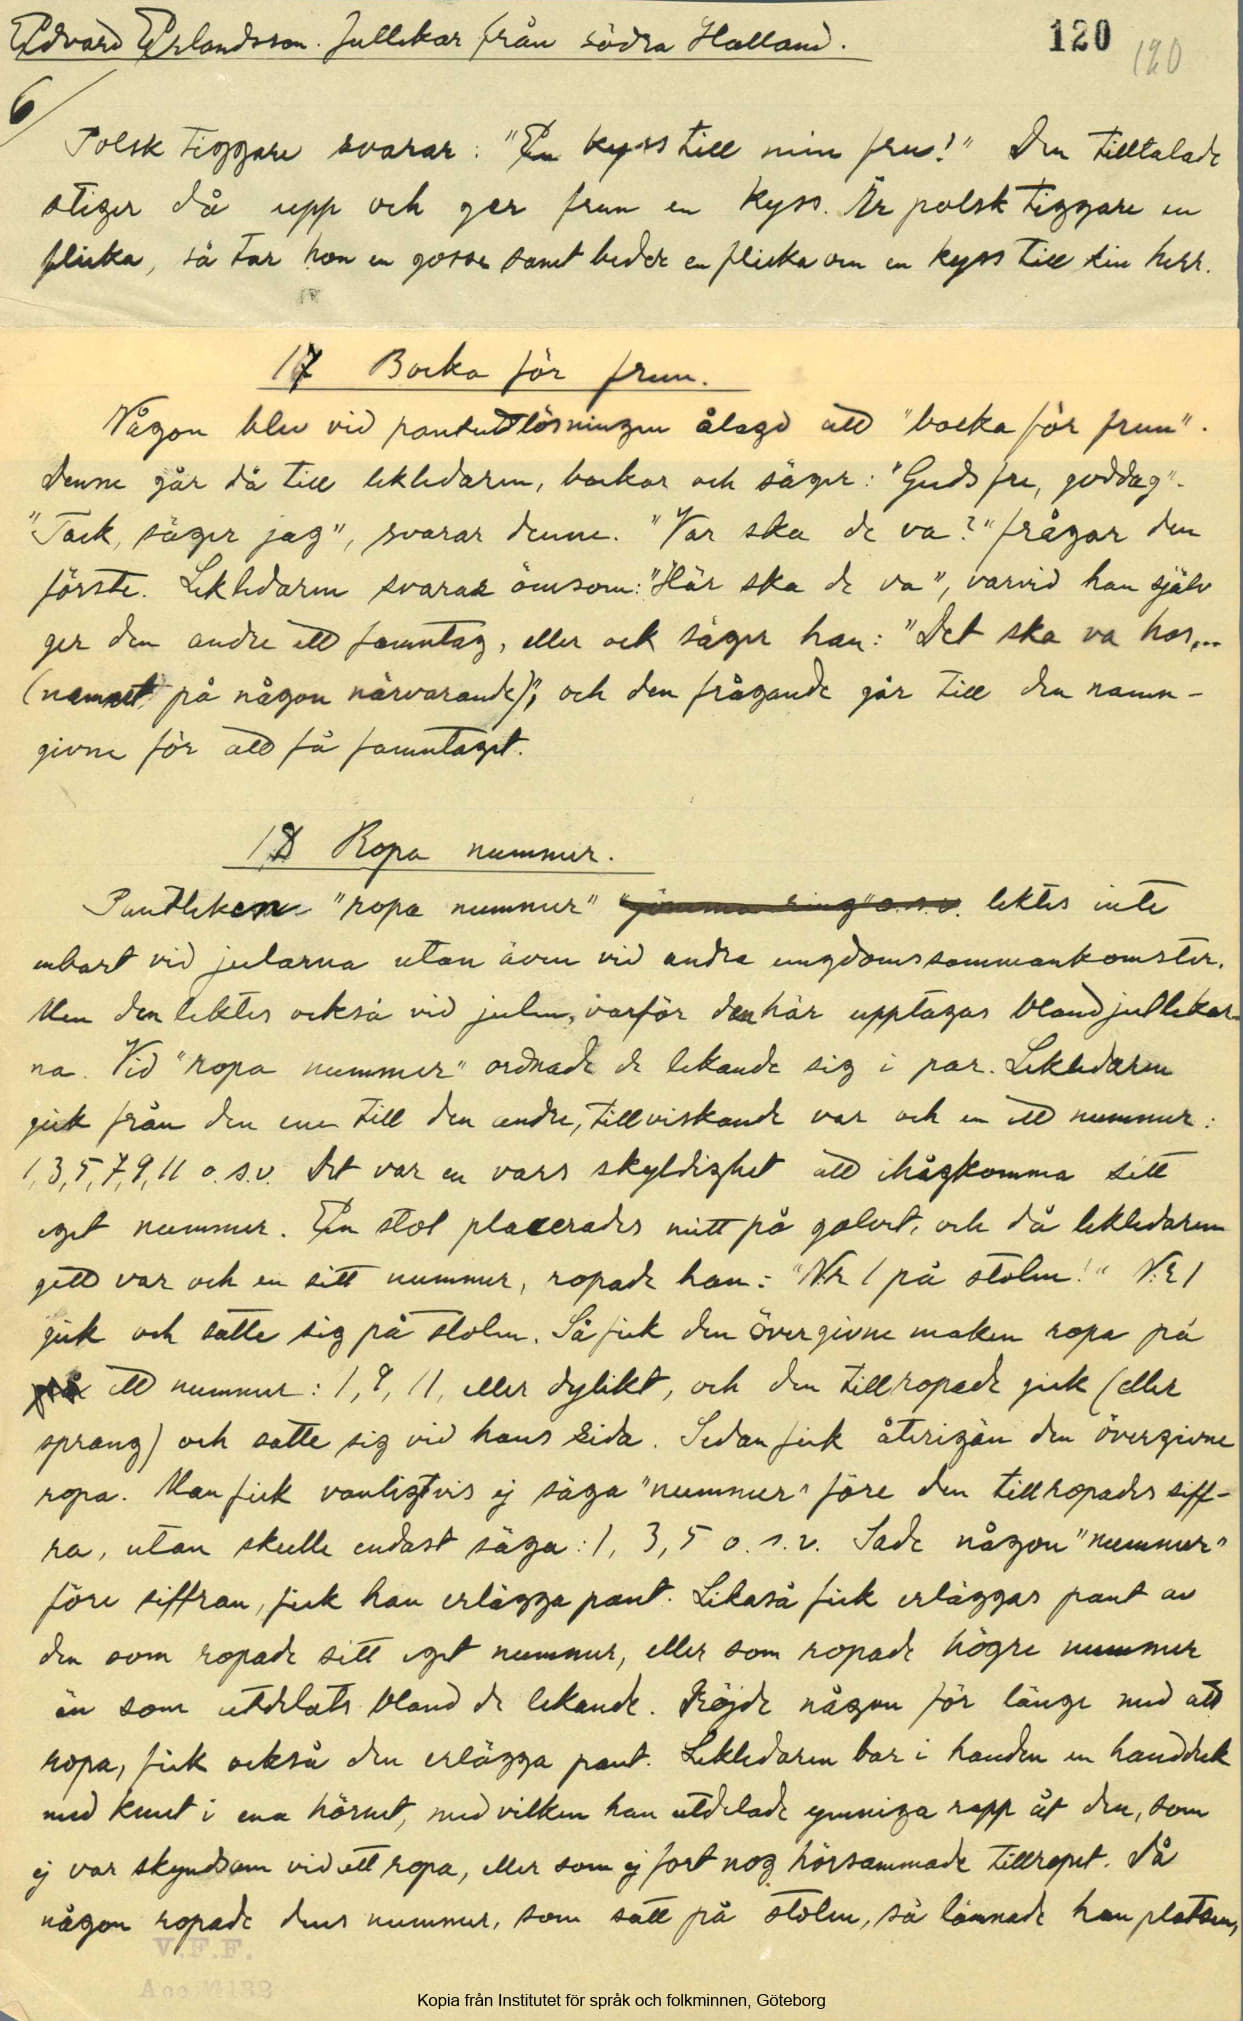 Edvard Erlandsson. Jullekar från södra Halland.
120
120
6
Polsk tiggare svarar: "En kyss till min fru!" Den tilltalade
stiger då upp och ger frun en kyss. Är polsk tiggare en
flicka, så tar hon en gosse samt beder en flicka om en kyss till sin herr.
17 Bocka för frun.
Någon blev vid pantutlösningen ålagd att "bocka för frun".
Denne går då till lekledaren, bockar och säger: "Guds fre, goddag".
"Tack, säger jag", svarar denne. "Var ska de va?" frågar den
förste. Lekledaren svarar ömsom: "Här ska de va", varvid han själv
ger den andre ett famntag, eller ock säger han: "Det ska va hos...
(namnet på någon närvarande)", och den frågande går till den namn-
givne för att få famntaget.
18 Ropa nummer.
Pantleken "ropa nummer" "gömma ring" o.s.v. lektes inte
enbart vid jularna utan även vid andra ungdomssammankomster.
Men den lektes också vid julen, varför den här upptagas bland jullekar-
na. Vid "ropa nummer" ordnade de lekande sig i par. Lekledaren
gick från den ene till den andre, tillviskande var och en ett nummer:
1, 3, 5, 7, 9, 11 o.s.v. Det var en vars skyldighet att ihågkomma sitt
eget nummer. En stol placerades mitt på golvet, och då lekledaren
gett var och en sitt nummer, ropade han: "N:r 1 på stolen!" N:r 1
gick och satte sig på stolen. Så fick den övergivne maken ropa på
på ett nummer: 1, 9, 11, eller dylikt, och den tillropade gick (eller
sprang) och satte sig vid hans sida. Sedan fick återigen den övergivne
ropa. Man fick vanligtvis ej säga "nummer" före den tillropades siff-
ra, utan skulle endast säga: 1, 3, 5 o.s.v. Sade någon "nummer"
före siffran, fick han erlägga pant. Likaså fick erläggas pant av
den som ropade sitt eget nummer, eller som ropade högre nummer
än som utdelats bland de lekande. Dröjde någon för länge med att
ropa, fick också den erlägga pant. Lekledaren bar i handen en handduk
med knut i ena hörnet, med vilken han utdelade ymniga rapp åt den, som
ej var skyndsam vid att ropa, eller som ej fort nog hörsammade tillropet. Då
någon ropade dens nummer, som satt på stolen, så lämnade han platsen,
V.F.F.
Kopia från Institutet för språk och folkminnen, Göteborg